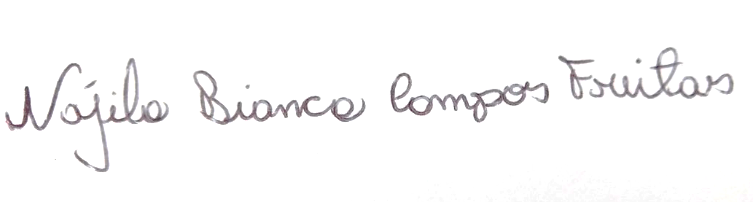 Nájila Bianca Campos Freitas